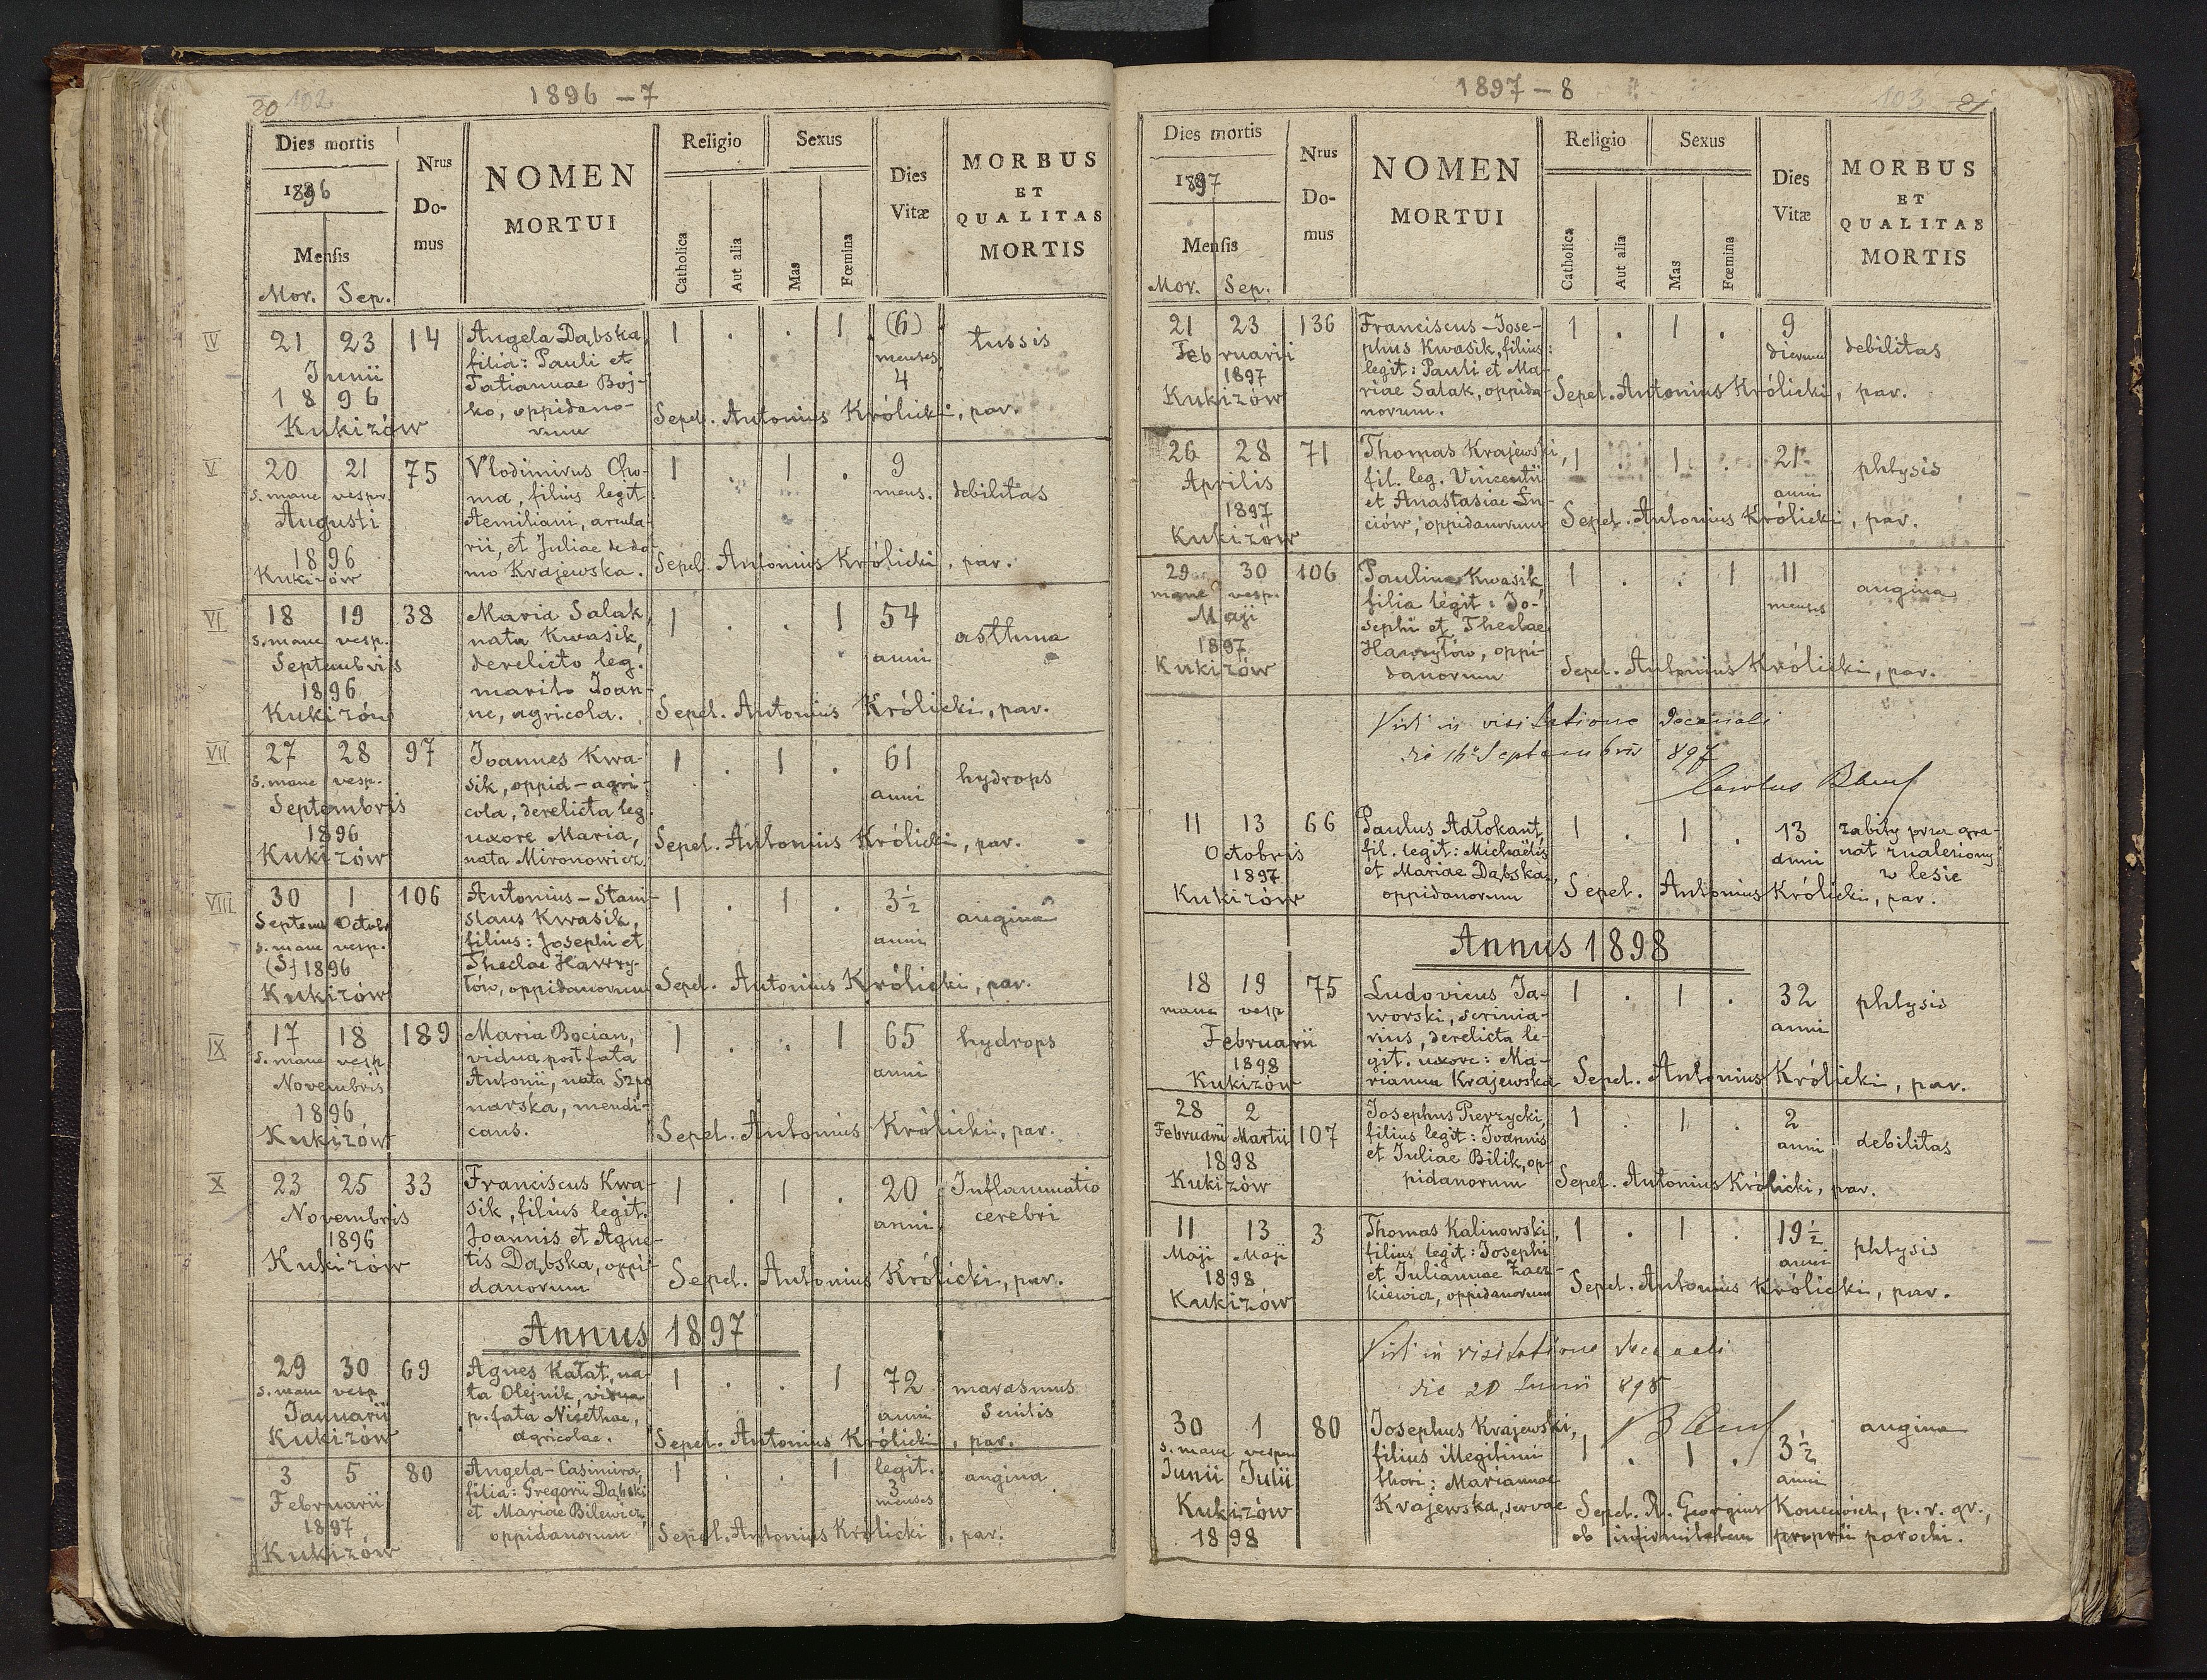 20 102
1896 – 7
Dies mortis
1896
Mensis
Mor. Sep.
Nrus Domus
NOMEN
MORTUI
Religio
Catholica
Aut alia
Sexus
Mas
Fœmina
Dies
Vitæ
MORBUS
ET
QUALITAS
MORTIS
IV
21 23 14
Junii
1896
Kukizów
Angela Dąbska,
filia: Pauli et
Tatiannae Boj-
ko, oppidano-
rum
1 . . 1
(6)
menses
4
tussis
Sepel. Antonius Królicki, par.
V
20 21 75
s. mane vesper.
Augusti
1896
Kukizów
Vlodimirus Cho-
ma, filius legit
Aemiliani, arcula-
rii, et Juliae de do-
mo Krajewska.
1 . 1 .
9
mens.
debilitas
Sepel. Antonius Królicki, par.
VI
18 19 38
s. mane vesp.
Septembris
1896
Kukizów
Maria Salak,
nata Kwasik,
derelicto leg.
marito Joan-
ne, agricola.
1 . . 1
54
anni
asthma
Sepel. Antonius Królicki, par.
VII
27 28 97
s. mane vesp.
Septembris
1896
Kukizów
Joannes Kwa-
sik, oppid – agri-
cola, derelicta leg.
uxore Maria,
nata Mironowicz
1 . 1 .
61
anni
hydrops
Sepel. Antonius Królicki, par.
VIII
30 1 106
Septem Octobr
s. mane vesp.
(S) 1896
Kukizów
Antonius – Stani-
slaus Kwasik,
filius: Josephi et
Theclae Hawry-
łow, oppidanorum
1 . 1 .
3½
anni
angina
Sepel. Antonius Królicki, par.
IX
17 18 189
s. mane vesp
Novembris
1896
Kukizów
Maria Bocian,
vidua post fata
Antonii, nata Szpo
narska, mendi-
cans.
1 . . 1
65
anni
hydrops
Sepel. Antonius Królicki, par.
X
23 25 33
Novembris
1896
Kukizów
Franciscus Kwa-
sik, filius legit.
Joannis et Agne-
tis Dąbska, oppi-
danorum
1 . 1 .
20
anni
Inflammatio
cerebri
Sepel. Antonius Królicki, par.
Annus 1897
29 30 69
s. mane vesp
Januarii
Kukizów
Agnes Kałat, na-
ta Olejnik, vidua
p. fata Nicethae,
agricolae.
1 . . 1
72
anni
marasmus
senilis
Sepel. Antonius Królicki, par.
3 5 80
Februarii
1897
Kukizów
Angela – Casimira,
filia: Gregorii Dąbski
et Mariae Bilewicz,
oppidanorum
1 . . 1
legit.
3
menses
angina
Sepel. Antonius Królicki, par.
1897 – 8
103 21
Dies mortis
1897
Mensis
Mor. Sep.
Nrus Domus
NOMEN
MORTUI
Religio
Catholica
Aut alia
Sexus
Mas
Fœmina
Dies
Vitæ
MORBUS
ET
QUALITAS
MORTIS
21 23 136
Februarii
1897
Kukizów
Franciscus – Jose-
phus Kwasik, filius
legit: Pauli et Ma-
riae Salak, oppida-
norum.
1 . 1 .
9
dierum
debilitas
Sepel. Antonius Królicki, par.
26 28 71
Aprilis
1897
Kukizów
Thomas Krajewski,
fil. leg. Vincentii
et Anastasiae Łu-
ciów, oppidanorum
1 . 1 .
21
anni
phtysis
Sepel. Antonius Królicki, par.
29 30 106
mane vesp.
Maji
1897
Kukizów
Paulina Kwasik
filia legit: Jo-
sephi et Theclae
Hawryłów, oppi-
danorum
1 . . 1
11
menses
angina
Sepel. Antonius Królicki, par.
Vidi in visitatione decanali
die 16 Septembris 897
Carolus
11 13 66
Octobris
1897
Kukizów
Paulus Adłokant,
fil. legit: Michaëlis
et Mariae Dąbska,
oppidanorum
1 . 1 .
13
anni
zabity przez gra-
nat znaleziony
w lesie
Sepel. Antonius Królicki, par.
Annus 1898
18 19 75
mane vesp
Februarii
1898
Kukizów
Ludovicus Ja-
worski, scrinia-
rius, derelicta le-
git. uxore: Ma-
rianna Krajewska
1 . 1 .
32
anni
phtysis
Sepel. Antonius Królicki, par.
28 2 107
Februarii Martii
1898
Kukizów
Josephus Pierzycki,
filius legit: Joannis
et Juliae Bilik, op-
pidanorum
1 . 1 .
2
anni
debilitas
Sepel. Antonius Królicki, par.
11 13 3
Maji Maji
1898
Kukizów
Thomas Kalinowski,
filius legit: Josephi
et Juliannae Zacz-
kiewicz, oppidanorum
1 . 1 .
19½
anni
phtysis
Sepel. Antonius Królicki, par.
Vidi in visitatione decanali
die 20 Junii 898
30 1 80
s. mane vespere
Junii Julii
Kukizów
1898
Josephus Krajewski,
filius illegitimi
thori: Mariannae
Krajewska, servae
1 . 1 .
3½
anni
angina
Sepel. R. Georgius p. r. gr.,
ob infirmitatem proprii parochi.